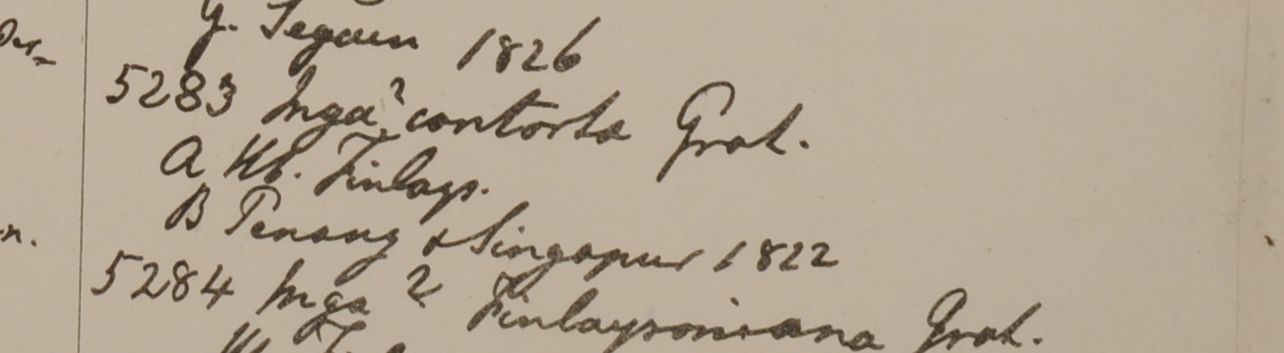 G. Segaen 1826
5283 Inga? contorta Grah.
A Hb. Finlays.
B Penang & Singapur 1822
5284 Inga? Finlaysoniana Grah.